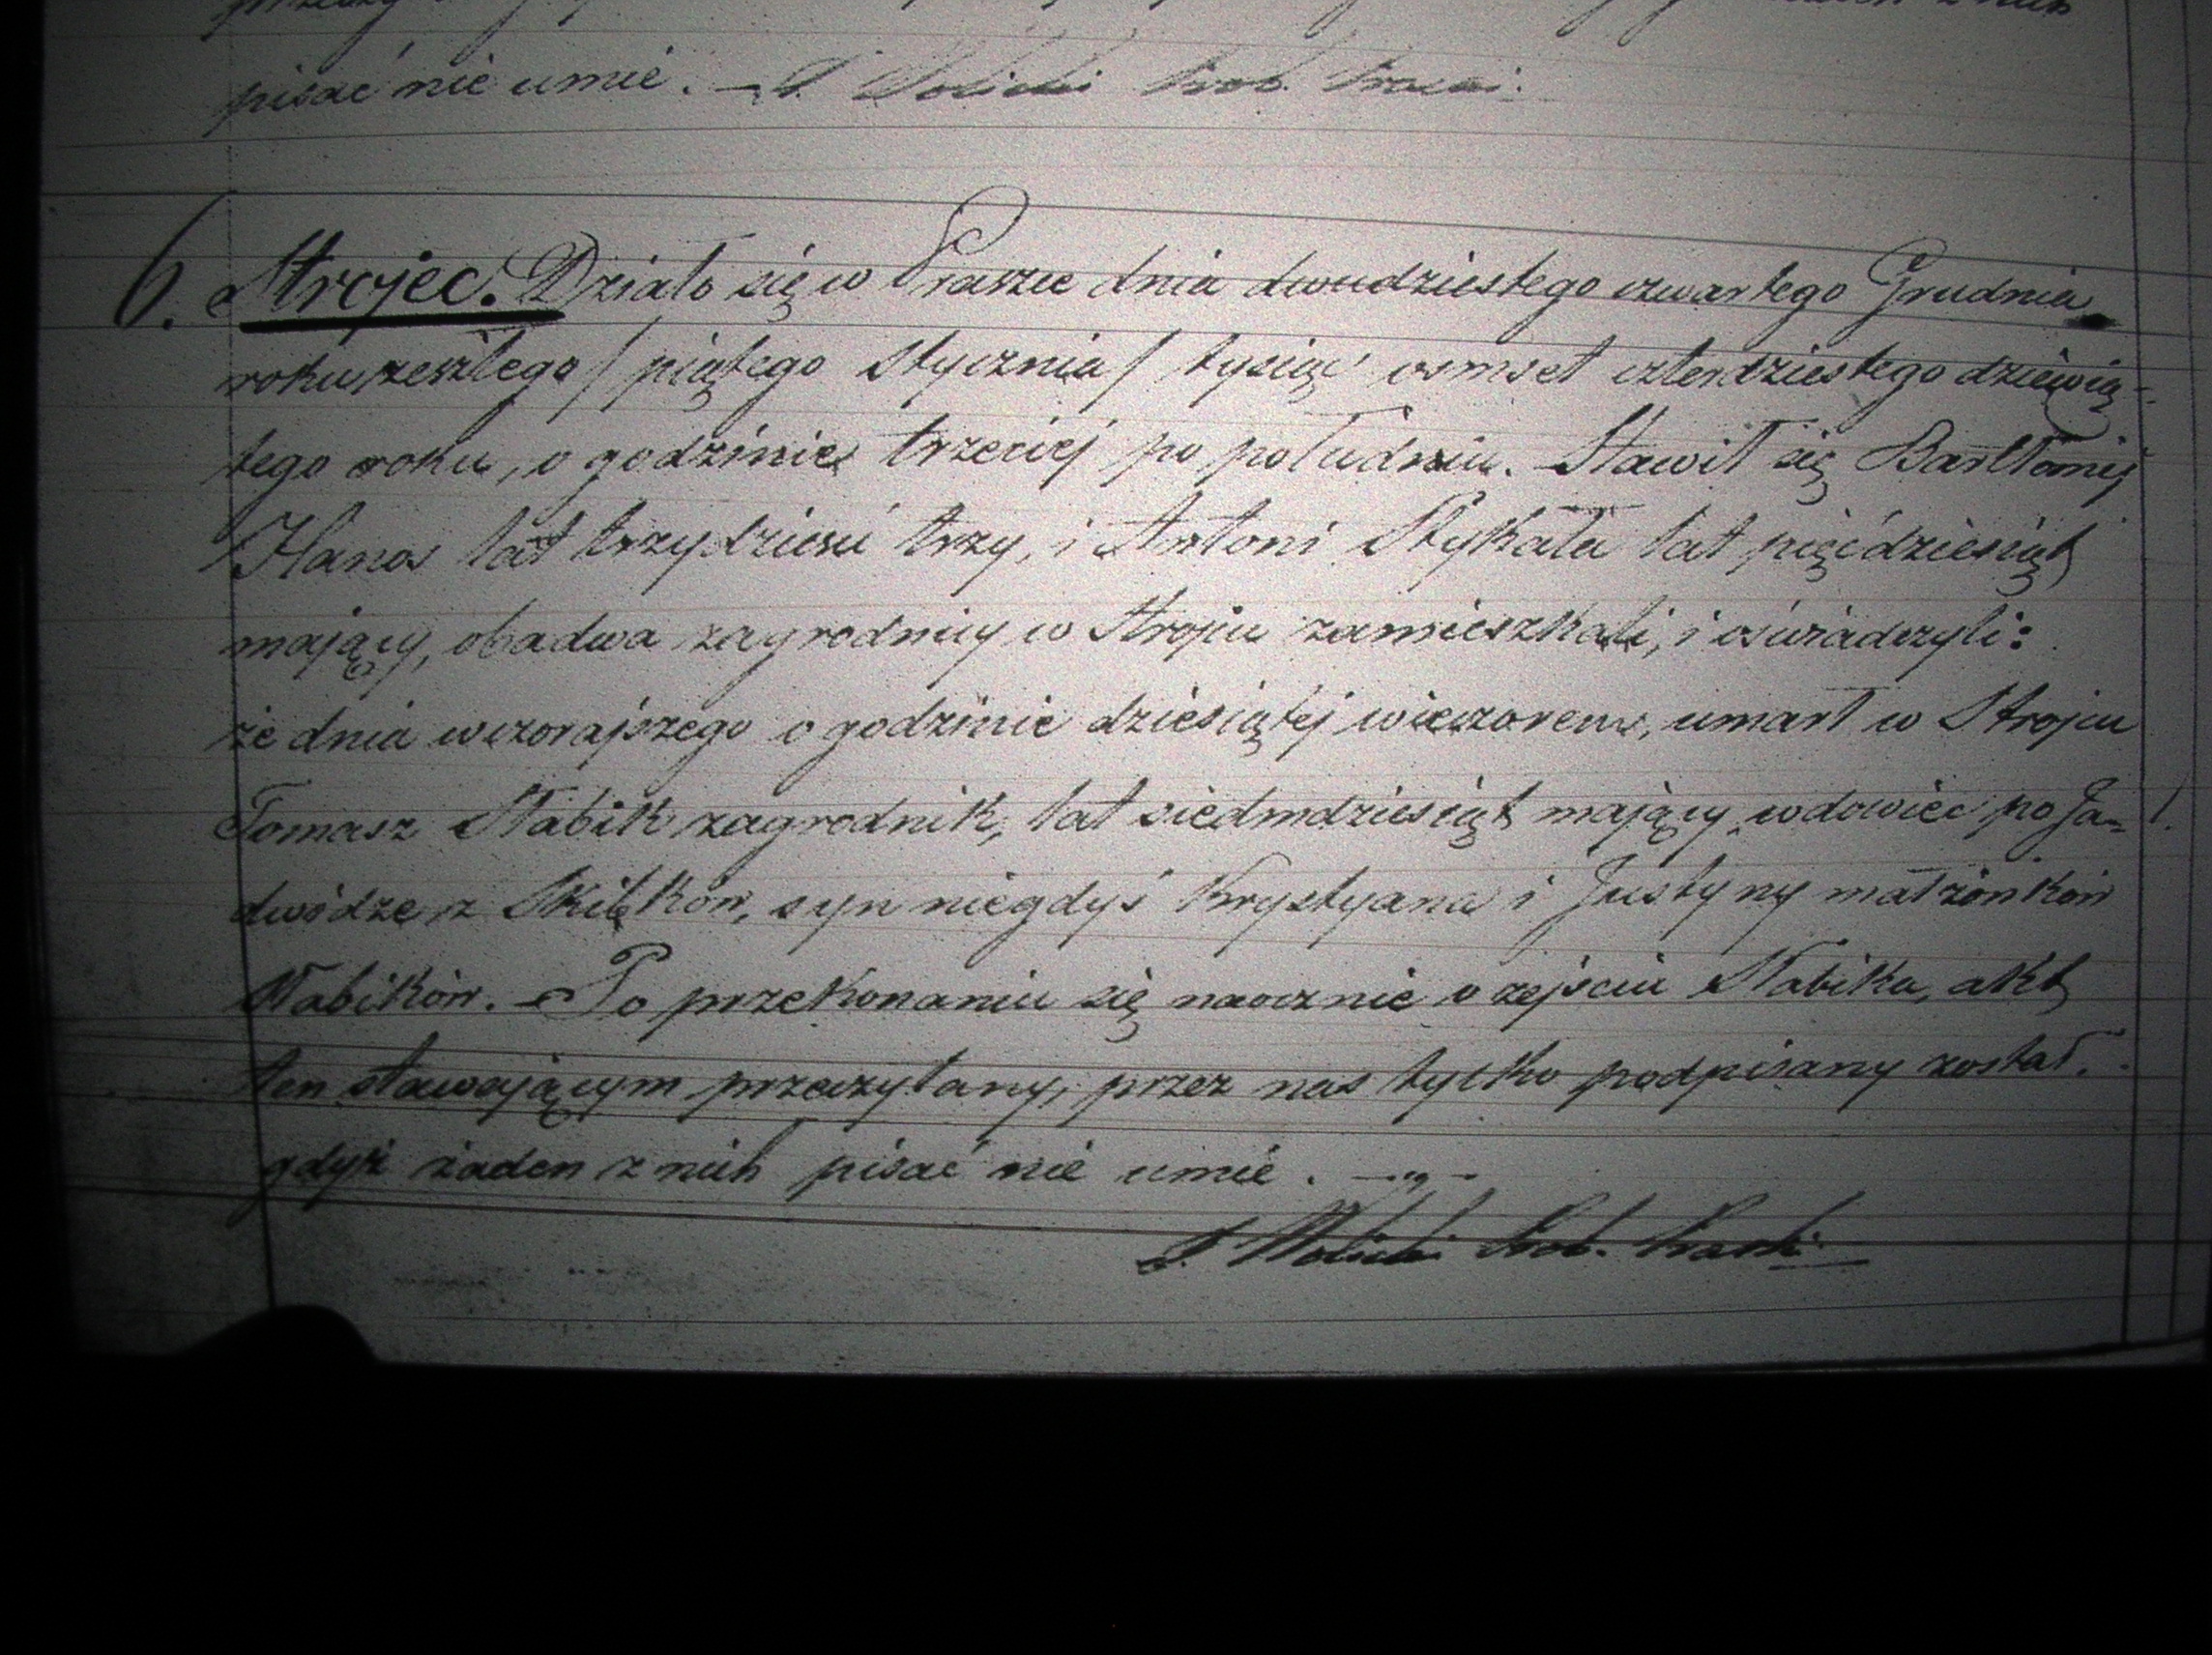 pisać nie umie. —
6. Strojec. Działo się w Praszce dnia dwudziestego czwartego Grudnia
roku zeszłego / piątego Stycznia / tysiąc osmset czterdziestego dziewią-
tego roku, o godzinie trzeciej po południu. Stawił się Bartłomiej
Hanas lat trzydzieści trzy, i Antoni Stykała lat pięćdziesiąt
mający, obadwa zagrodnicy w Strojcu zamieszkali, i oświadczyli:
że dnia wczorajszego o godzinie dziesiątej wieczorem, umarł w Strojcu
Tomasz Słabik zagrodnik, lat siedmdziesiąt mający, wdowiec po Ja-
dwidze z Skibków, syn niegdyś Krystyana i Justyny małżonków
Słabików. — Po przekonaniu się naocznie o zejściu Słabika, akt
ten stawającym przeczytany, przez nas tylko podpisany został.
gdyż żaden z nich pisać nie umie. —„—